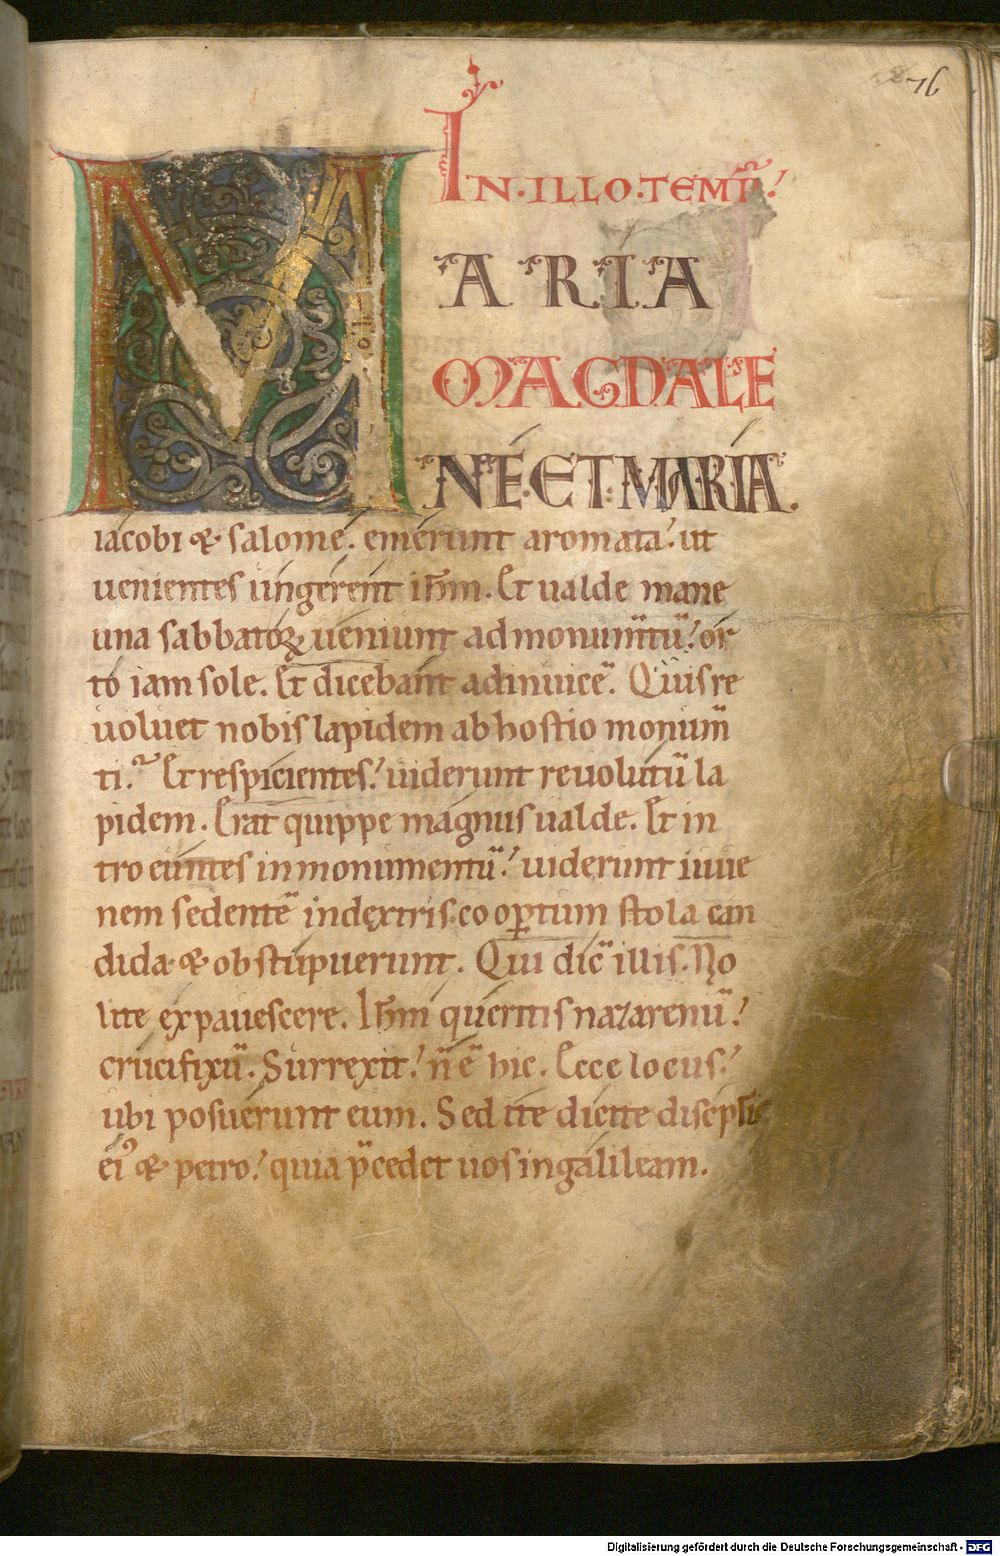 76
IN·ILLO·TEMP̄!
MARIA
MAGDALE
NE·ET·MARIA.
iacobi & salome. emerunt aromata! ut
uenientes ungerent ih̄m. Et ualde mane
una sabbatoꝝ ueniunt ad monum̄tū! or
to iam sole. Et dicebant adinuicē. Quis re
uoluet nobis lapidem ab hostio monum̄
ti? Et respicientes! uiderunt reuolutū la
pidem. Erat quippe magnus ualde. Et in
tro euntes in monumentū! uiderunt iuue
nem sedentē indextris coopertum stola can
dida & obstupuerunt. Qui dic̄ illis. No
lite expauescere. Ih̄m queritis nazarenū!
crucifixū. Surrexit! n̄ ē hic. Ecce locus!
ubi posuerunt eum. Sed ite dicite discipłis
ei⁹ & petro! quia p̄cedet uos in galileam.
Digitalisierung gefördert durch die Deutsche Forschungsgemeinschaft - DFG